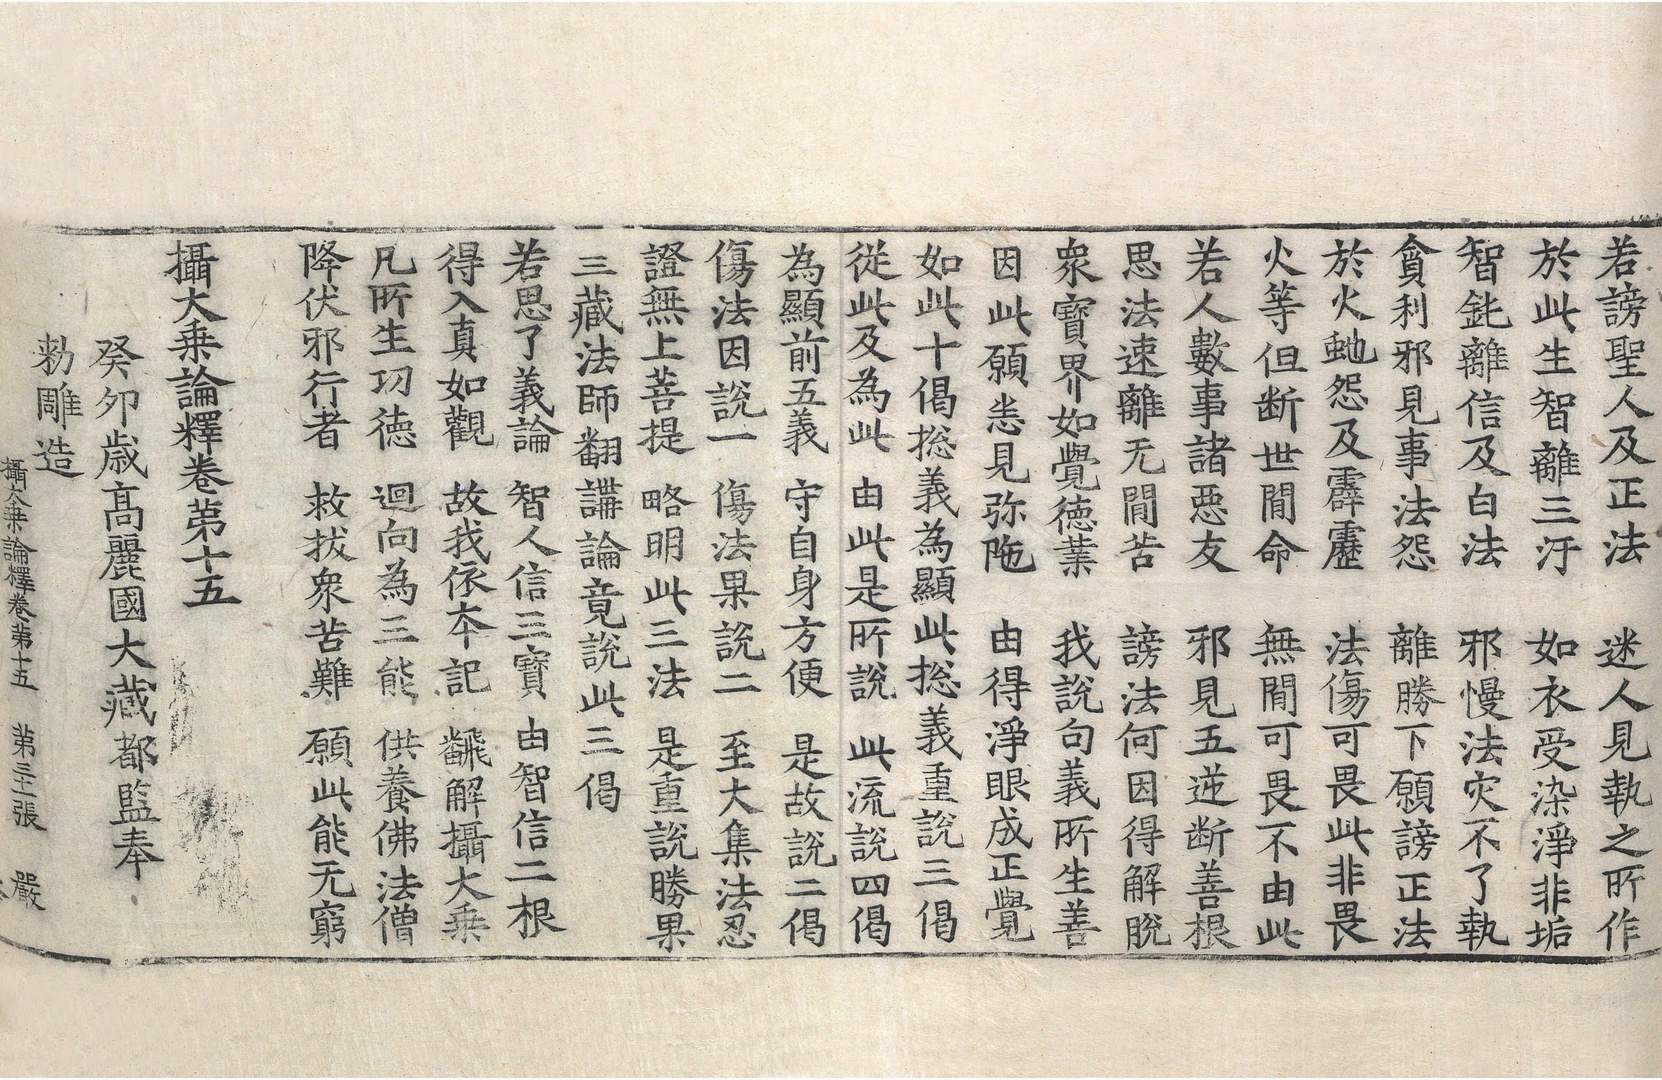 若謗聖人及正法　迷人見執之所作
於此生智離三汙　如衣受染淨非垢
智鈍離信及白法　邪慢法灾不了執
貪利邪見事法怨　離勝下願謗正法
於火虵怨及霹靂　法傷可畏此非畏
火等但断世間命　無間可畏不由此
若人數事諸惡友　邪見五逆断善根
思法速離无間苦　謗法何因得解脫
衆寶界如覺德業　我說句義所生善
因此願恙見弥陁　由得淨眼成正覺
如此十偈捴義為顯此捴義重說三偈
從此及為此　由此是所說　此流說四偈
為顯前五義　守自身方便　是故說二偈
傷法因說一　傷法果說二　至大集法忍
證無上菩提　略明此三法　是重說勝果
三藏法師翻講論竟說此三偈
若思了義論　智人信三寶　由智信二根
得入真如觀　故我依夲記　飜解攝大乗
凡所生功德　迴向為三能　供養佛法僧
降伏邪行者　救拔衆苦難　願此能无窮
攝大乗論釋卷苐十五
癸夘歲髙麗國大藏都監奉
勑雕造
攝大乗論釋卷苐十五　苐三十一張　嚴